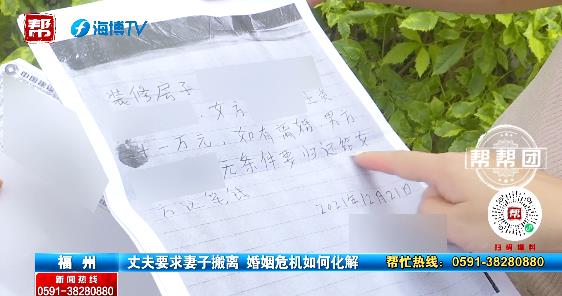 帮
海博TV
装修房子
,女方
出类
一万元,如有离婚,男方
无条件要归还给女
方这笔钱
2021年12月21日
帮帮团
帮
扫码爆料
福州
丈夫要求妻子搬离 婚姻危机如何化解
帮忙热线:0591-38280880
新闻热线
0591-38280880